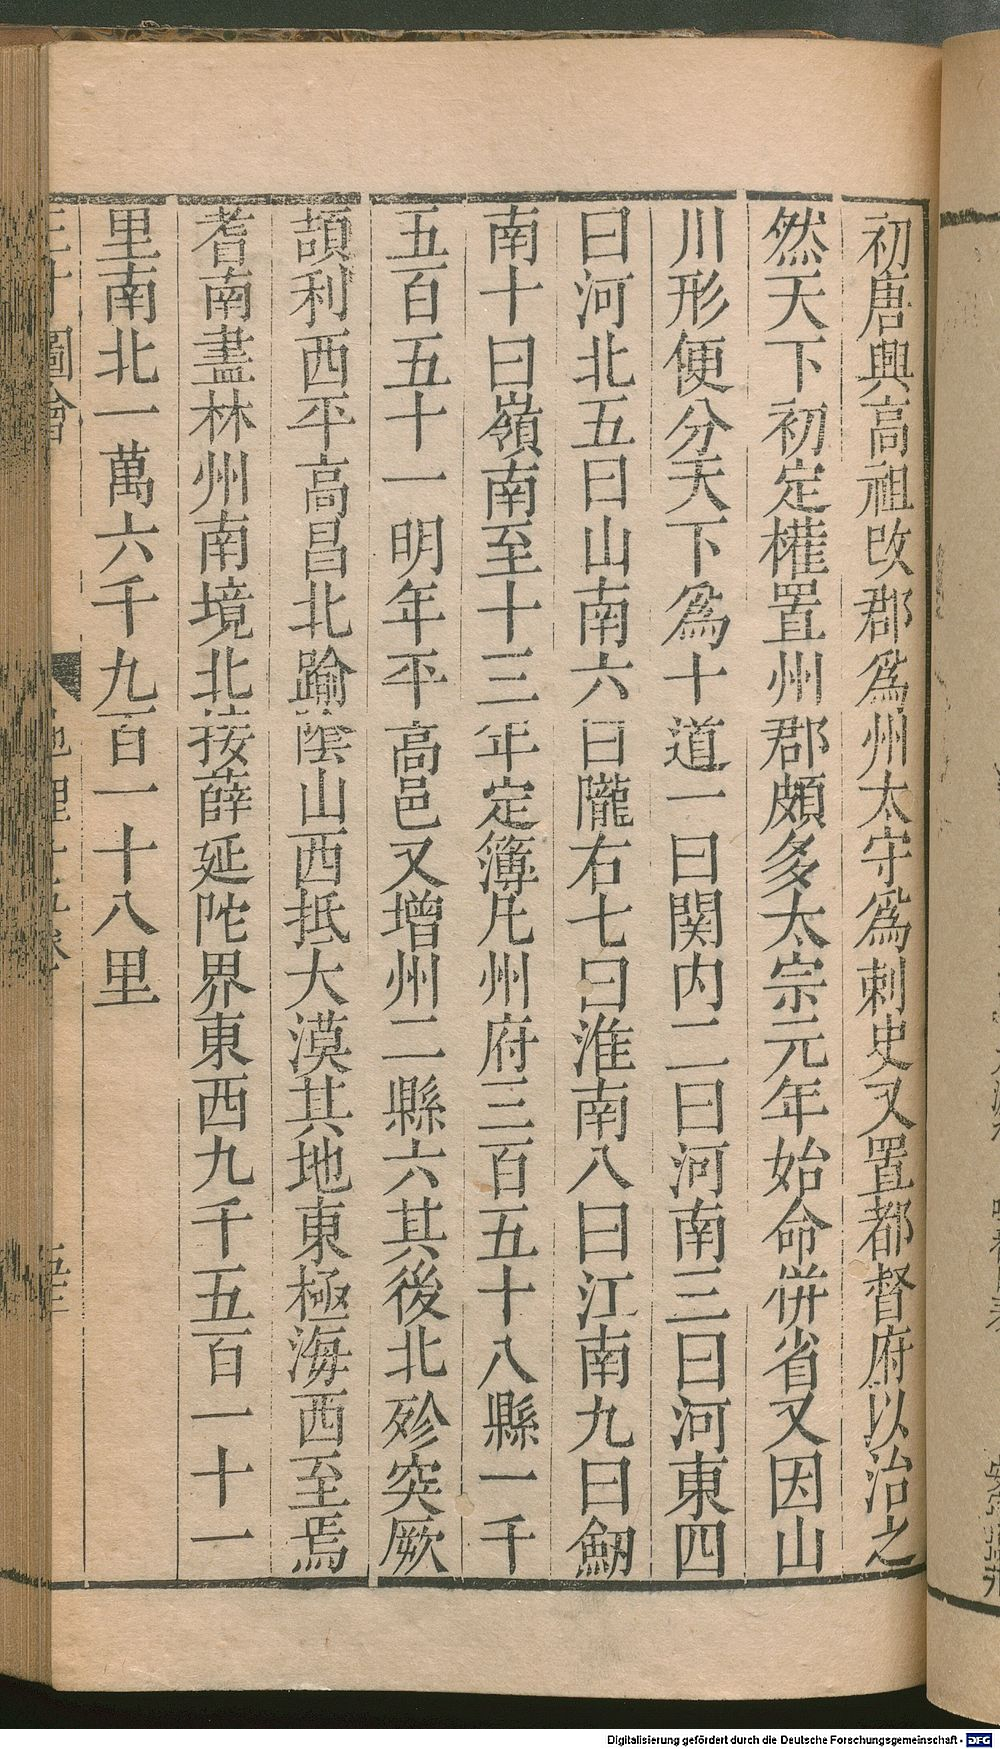 初唐興高祖改郡爲州太守爲刺史又置都督府以治之
然天下初定權置州郡頗多太宗元年始命併省又因山
川形便分天下爲十道一曰関内二曰河南三曰河東四
曰河北五曰山南六曰隴右七曰淮南八曰江南九曰劒
南十曰嶺南至十三年定簿凡州府三百五十八縣一千
五百五十一明年平高邑又增州二縣六其後北殄突厥
頡利西平高昌北踰陰山西抵大漠其地東極海西至焉
耆南盡林州南境北接薛延陀界東西九千五百一十一
里南北一萬六千九百一十八里
三才圖會
地理
Digitalisierung gefördert durch die Deutsche Forschungsgemeinschaft - DFG